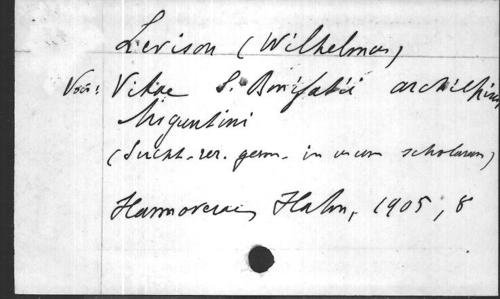 Levison (Wilhelmus)
Vitae S. Bonifatii archiepisc
Moguntini
(Script. rer. germ. in usum scholarum)
Hannoverae, Hahn, 1905, 8